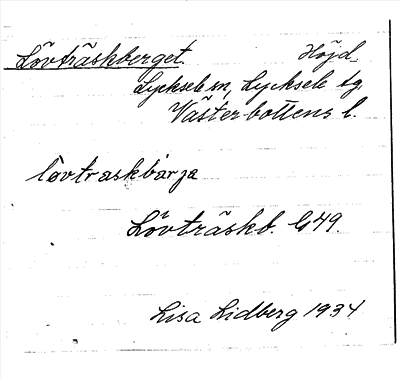 Lövträskberget. Höjd
Lycksele sn, Lycksele tg.
Västerbottens l.
lövtraskbärja
Lövträskb. G49.
Lisa Lidberg 1934